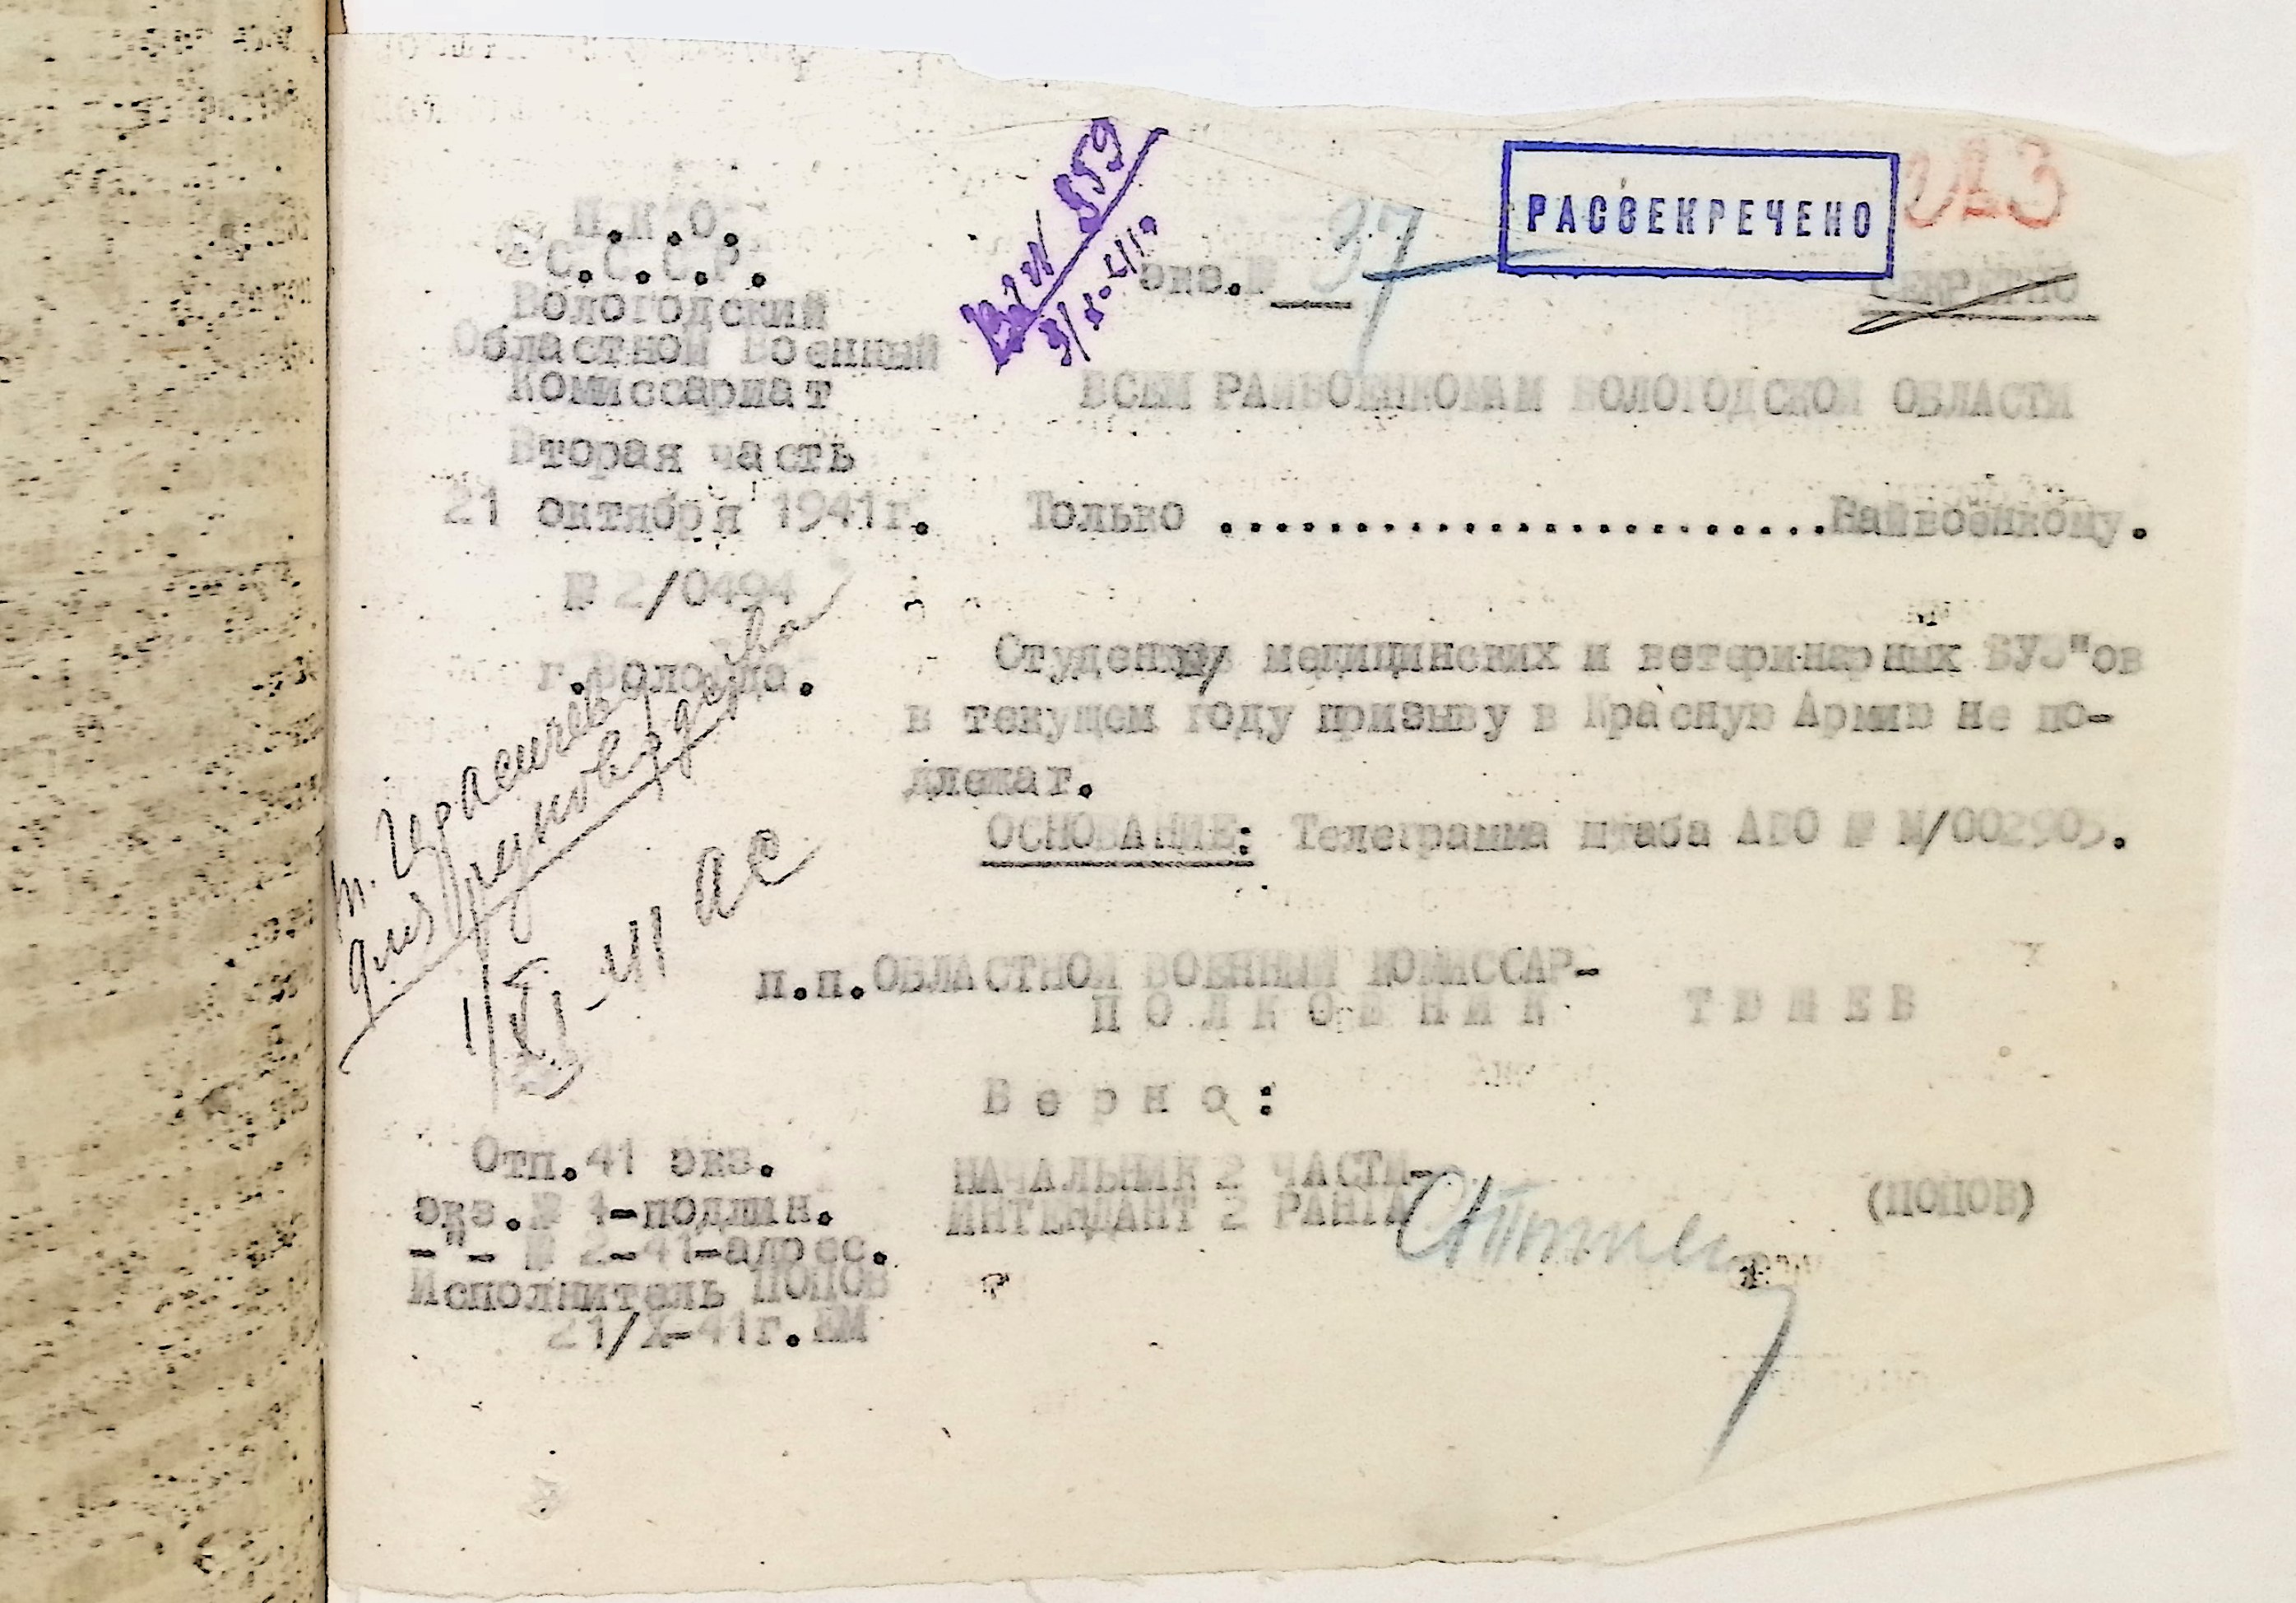 Н.К.О.
С.С.С.Р.
Вологодский
Областной Военный
Комиссариат
Вторая часть
21 октября 1941г.
№ 2/0494
г.Вологда.
Вх 559
экз.№ 37
РАССЕКРЕЧЕНО
223
СЕКРЕТНО
ВСЕМ РАЙВОЕНКОМАМ ВОЛОГОДСКОЙ ОБЛАСТИ
Только ..........................Райвоенкому.
Студенты медицинских и ветеринарных ВУЗ"ов
в текущем году призыву в Красную Армию не по-
длежат.
ОСНОВАНИЕ: Телеграмма штаба АВО № М/002905.
т. Герасичев
для руководства
1/XI-41
п.п.ОБЛАСТНОЙ ВОЕННЫЙ КОМИССАР-
ПОЛКОВНИК ТЮШЕВ
Верно:
НАЧАЛЬНИК 2 ЧАСТИ-
ИНТЕНДАНТ 2 РАНГА (ПОПОВ)
Отп.41 экз.
экз.№ 1-подлин.
-"- № 2-41-адрес.
Исполнитель ПОПОВ
21/X-41г.ЕМ